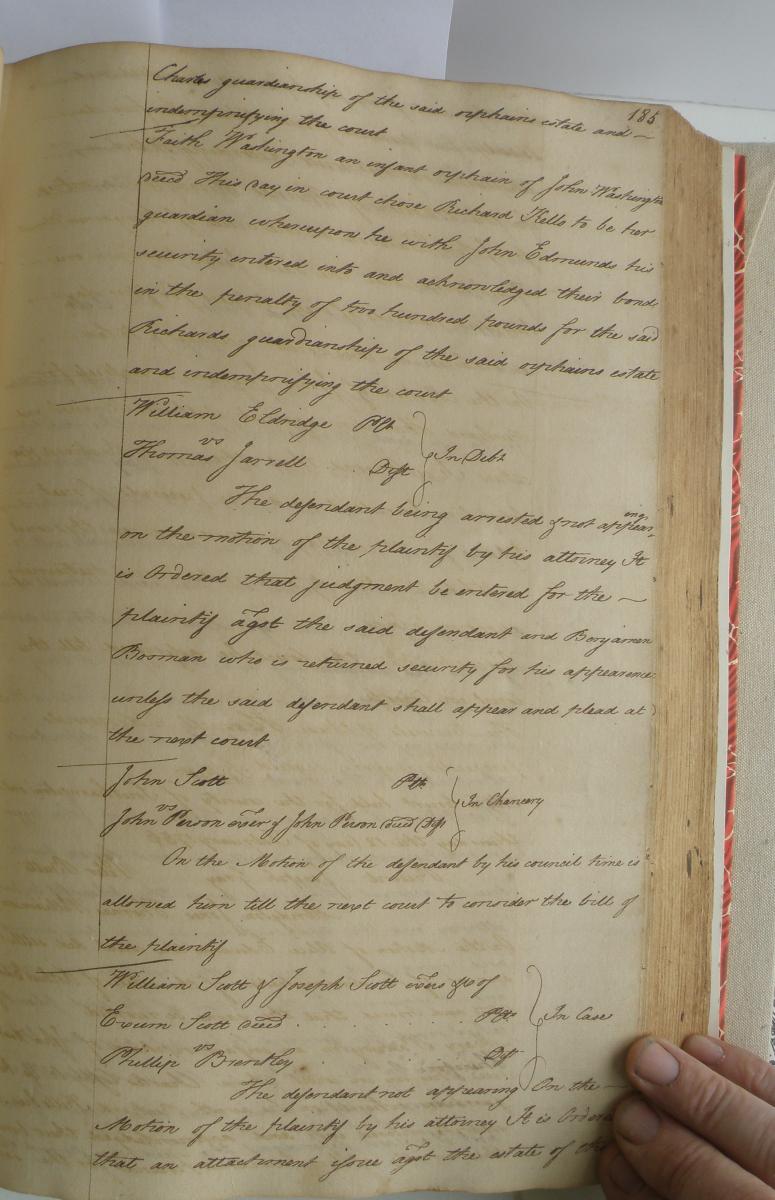 185
Charles guardianship of the said orphains estate and
indemnifying the court
Faith Washington an infant orphain of John Washington
decd This day in court chose Richard Kello to be her
guardian whereupon he with John Edmunds his
security entered into and acknowledged their bond
in the penalty of two hundred pounds for the said
Richards guardianship of the said orphains estate
and indemnifying the court
William Eldridge Plt
vs In Debt
Thomas Jarrell Deft
The defendant being arrested & not appearing
on the motion of the plaintif by his attorney It
is Ordered that judgment be entered for the
plaintif agst the said defendant and Benjamen
Bosman who is returned security for his appearence
unless the said defendant shall appear and plead at
the next court
John Scott Plt
vs In Chancery
John Person exer of John Person decd Deft
On the Motion of the defendant by his council time is
allowed him till the next court to consider the bill of
the plaintif
William Scott & Joseph Scott exers &c of
Exum Scott decd Plts In Case
vs
Phillip Brantley Deft
The defendant not appearing On the
Motion of the plaintif by his attorney It is Ordere
that an attachment issue agst the estate of the